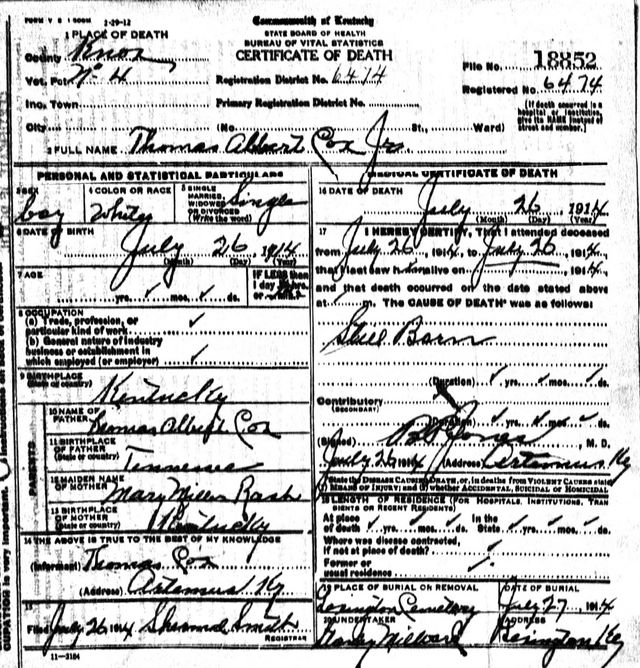 FORM V S 1 500M 2-29-12
Commonwealth of Kentucky
STATE BOARD OF HEALTH
BUREAU OF VITAL STATISTICS
CERTIFICATE OF DEATH
1 PLACE OF DEATH
County Knox
Vot. Pct. No 4
Inc. Town
City (No. St., Ward)
Registration District No. 6474
Primary Registration District No.
File No. 18852
Registered No. 6474
(If death occurred in a hospital or institution, give its NAME instead of street and number.)
2 FULL NAME Thomas Albert Cox Jr.
PERSONAL AND STATISTICAL PARTICULARS
3 SEX boy
4 COLOR OR RACE White
5 SINGLE MARRIED, WIDOWED OR DIVORCED (Write the word) Single
6 DATE OF BIRTH
July 26 1914
(Month) (Day) (Year)
7 AGE
yrs. mos. ds.
IF LESS than 1 day hrs.
8 OCCUPATION
(a) Trade, profession, or
particular kind of work
(b) General nature of industry
business or establishment in
which employed (or employer)
9 BIRTHPLACE
(State or country) Kentucky
PARENTS
10 NAME OF FATHER Thomas Albert Cox
11 BIRTHPLACE OF FATHER (State or country) Tennessee
12 MAIDEN NAME OF MOTHER Mary Rash
13 BIRTHPLACE OF MOTHER (State or country) Kentucky
14 THE ABOVE IS TRUE TO THE BEST OF MY KNOWLEDGE
(Informant) Thomas Cox
(Address) Artemus Ky
15
Filed July 26 1914 Smith
REGISTRAR
11-3184
MEDICAL CERTIFICATE OF DEATH
16 DATE OF DEATH
July 26 1914
(Month) (Day) (Year)
17 I HEREBY CERTIFY, That I attended deceased
from July 26, 1914, to July 26, 1914,
that I last saw h alive on 1914,
and that death occurred on the date stated above
at m. The CAUSE OF DEATH* was as follows:
Still Born
(Duration) yrs. mos. ds.
Contributory
(SECONDARY)
(Duration) yrs. mos. ds.
(Signed) Jones M. D.
July 26 1914 (Address) Artemus Ky
*State the DISEASE CAUSING DEATH, or, in deaths from VIOLENT CAUSES state MEANS OF INJURY; and (2) whether ACCIDENTAL, SUICIDAL OR HOMICIDAL
18 LENGTH OF RESIDENCE (FOR HOSPITALS, INSTITUTIONS, TRANSIENTS OR RECENT RESIDENTS)
At place of death yrs. mos. ds. In the State yrs. mos. ds.
Where was disease contracted,
if not at place of death?
Former or
usual residence
19 PLACE OF BURIAL OR REMOVAL
Lexington Cemetery
DATE OF BURIAL
July 27 1914
20 UNDERTAKER
Milward
ADDRESS
Lexington Ky